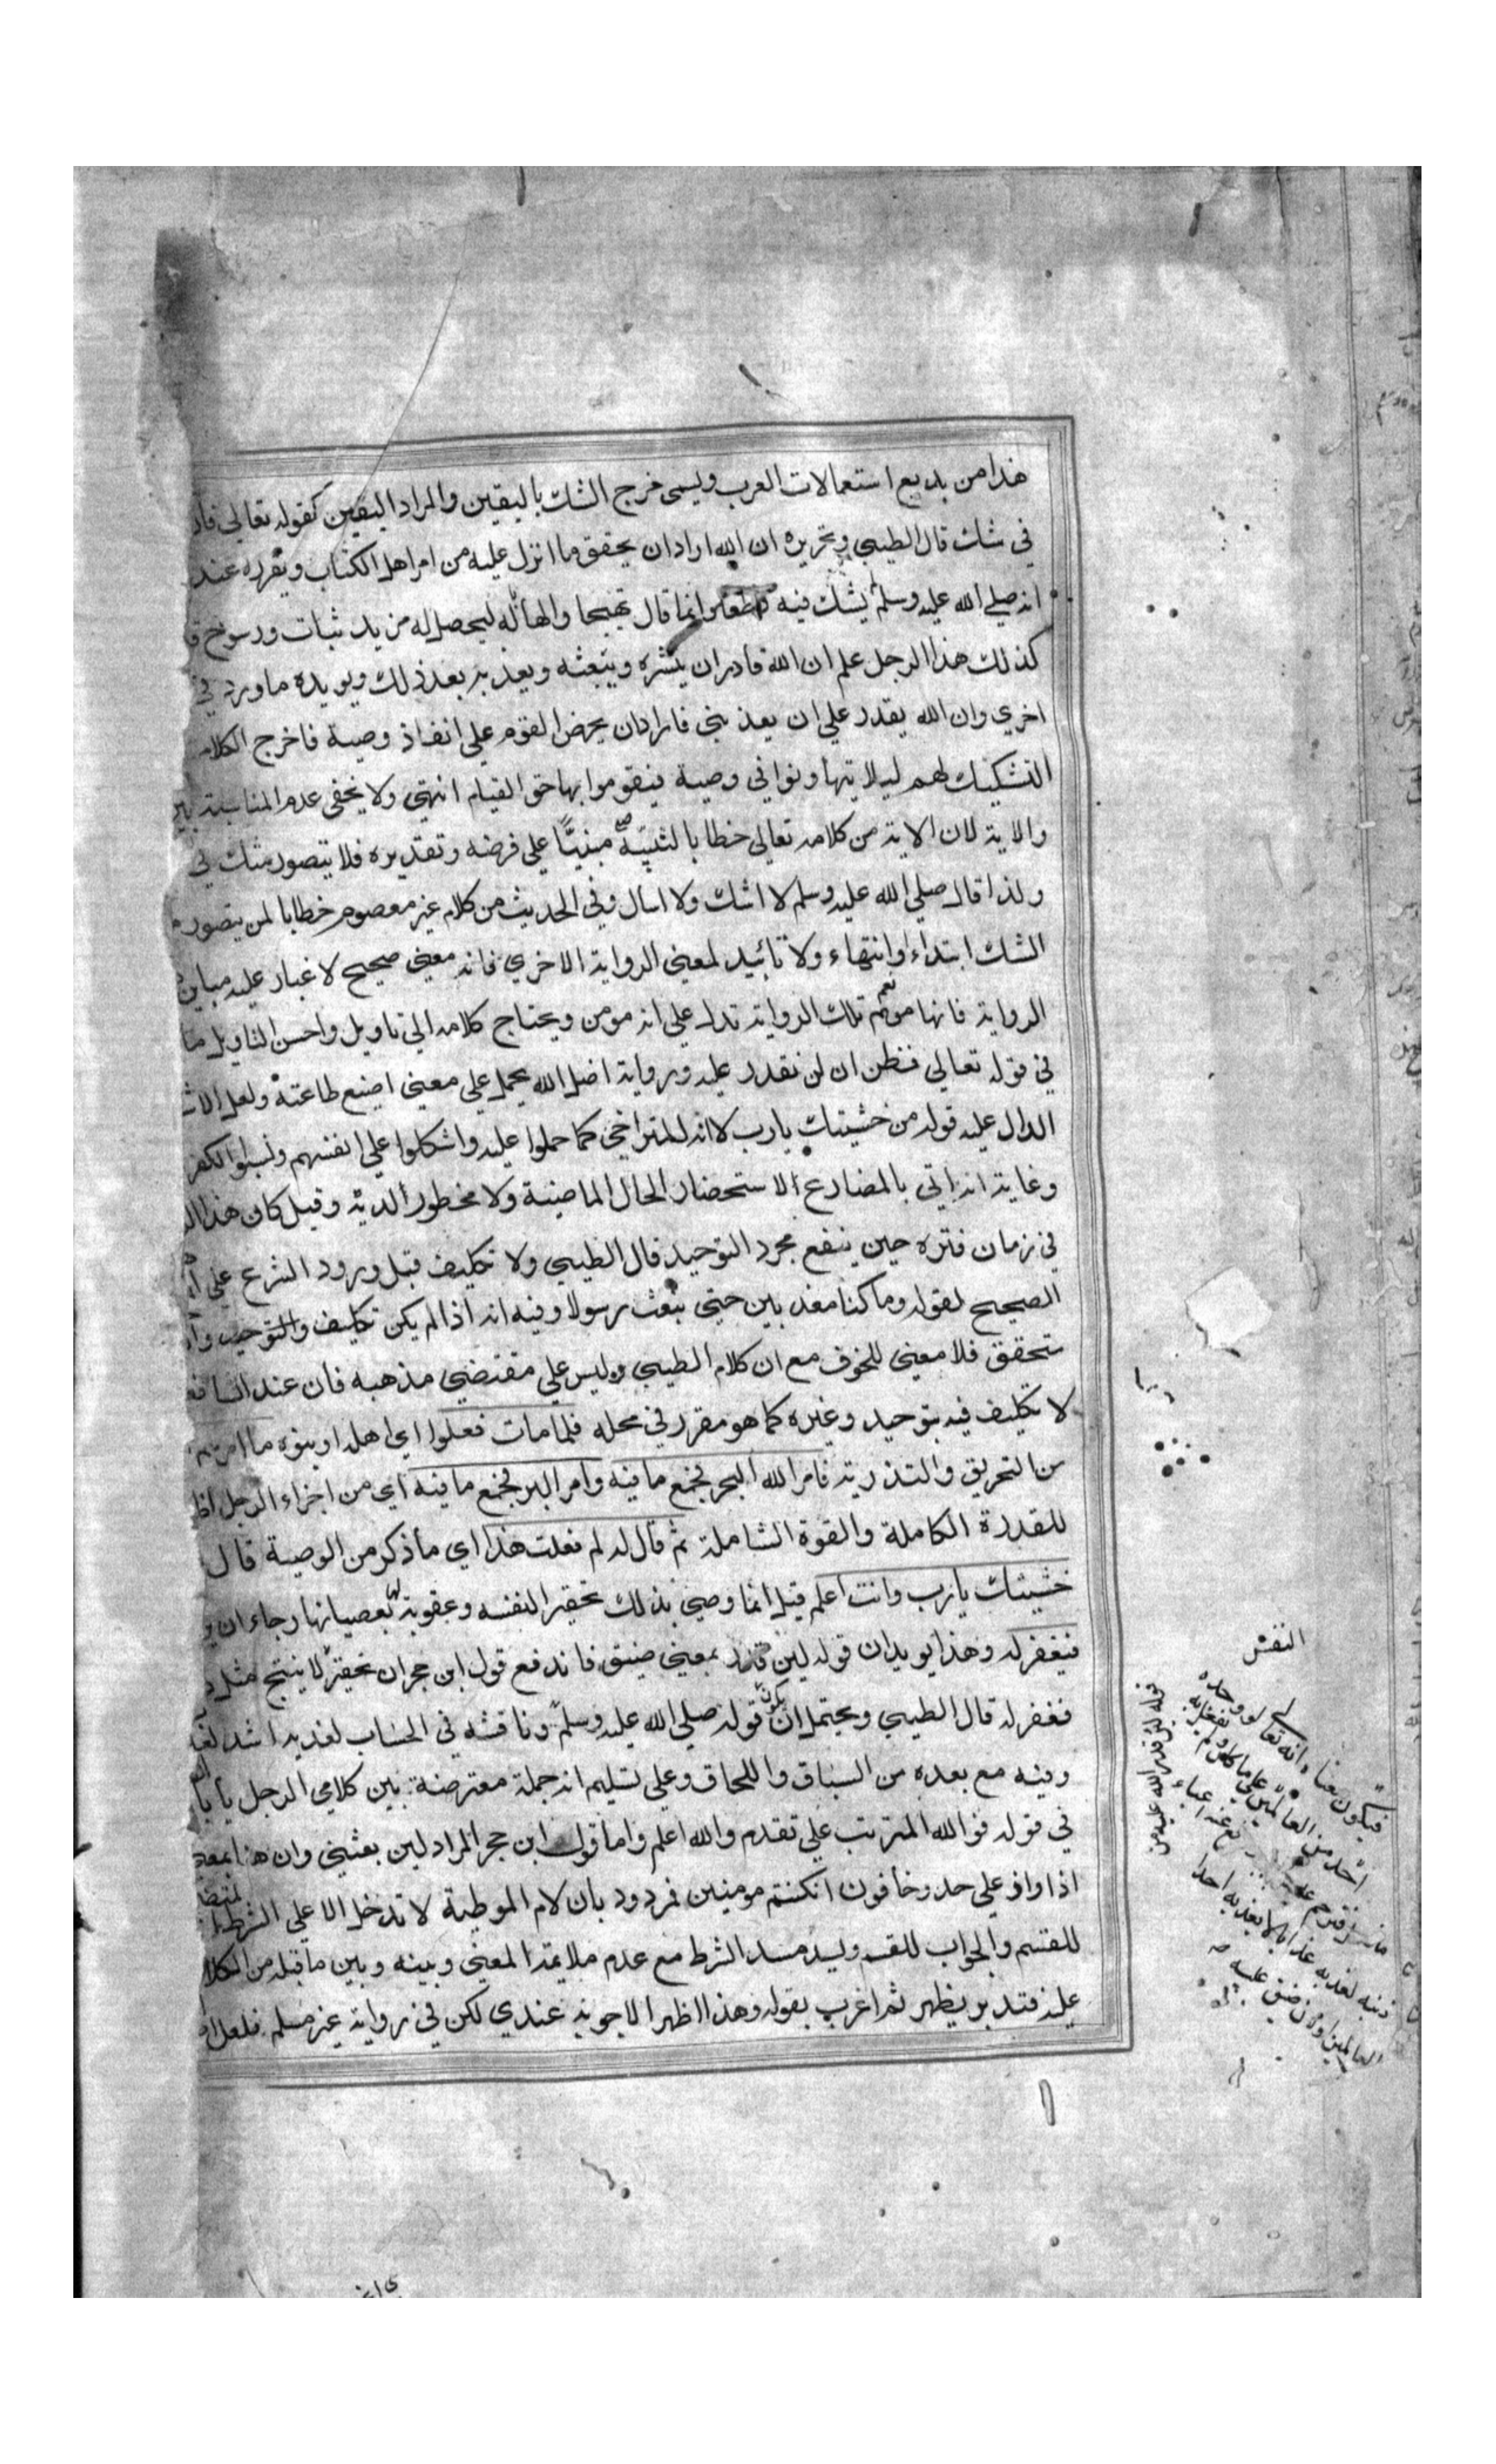 هذا من بديع استعمالات العرب ويسمى خرج الشك باليقين والمراد اليقين كقوله تعالى فان
في شك قال الطيبي وتحريره ان الله اراد ان يحقق ما انزل عليه من امر اهل الكتاب ويقرره عند
انه صلى الله عليه وسلم يشك فيه قط وانما قال تهييجا والهابا له ليحصل له مزيد ثبات ورسوخ
كذلك هذا الرجل علم ان الله قادر ان ينشره ويبعثه ويعذبه بعد ذلك ويويده ما ورد في
اخرى وان الله يقدر على ان يعذبني فاراد ان يحرض القوم على انفاذ وصية فاخرج الكلام
التشكيك لهم ليلا يتهاونوا في وصية فيقوموا بها حق القيام انتهى ولا يخفى عدم المناسبة بين
والاية لان الاية من كلامه تعالى خطابا لنبيه مبنيا على فرضه وتقديره فلا يتصور شك في
ولذا قال صلى الله عليه وسلم لا اشك ولا اسال وفي الحديث من كلام غير معصوم خطابا لمن يتصور
الشك ابتداء وانتهاء ولا تائيد لمعنى الرواية الاخرى فانه معنى صحيح لا غبار عليه مباين
الرواية فانها موهم نعم تلك الرواية تدل على انه مومن ويحتاج كلامه الى تاويل واحسن التاويل ما
في قوله تعالى فظن ان لن نقدر عليه ورواية اضل الله يحمل على معنى اضيع طاعته ولعل
الدال عليه قوله من خشيتك يارب لا انه للمتراخي كما حملوا عليه واشكلوا على انفسهم ونسبوا الكفر
وغاية انه اتى بالمضارع لاستحضار الحال الماضية ولا محظور لديه وقيل كان هذا
في زمان فترة حين ينفع مجرد التوحيد قال الطيبي ولا تكليف قبل ورود الشرع على
الصحيح لقوله وما كنا معذبين حتى نبعث رسولا وفيه انه اذا لم يكن تكليف والتوحيد
ستحقق فلا معنى للخوف مع ان كلام الطيبي وليس على مقتضى مذهبه فان عند
لا تكليف فيه بتوحيد وغيره كما هو مقرر في محله فلما مات فعلوا اي اهله او بنوه ما امرهم
من التحريق والتذرية فامر الله البحر فجمع ما فيه وامر البر فجمع ما فيه اي من اجزاء الرجل
للقدرة الكاملة والقوة الشاملة ثم قال له لم فعلت هذا اي ما ذكر من الوصية قال
خشيتك يارب وانت اعلم قيل انما وصى بذلك تحقيرا لنفسه وعقوبة لها بعصيانها رجاء ان
فيغفر له وهذا يويد ان قوله لين قدر بمعنى ضيق فاندفع قول ابن حجر ان تحقير لا ينتج مثل
فغفر له قال الطيبي ويحتمل ان يكون قوله صلى الله عليه وسلم وناقشه في الحساب لعذبه اشد
وفيه مع بعده من السباق واللحاق وعلى تسليم انه جملة معترضة بين كلامي الرجل يأباه
في قوله فوالله المترتب على تقدم والله اعلم واما قول ابن حجر المراد لين بعثني وان هنا بمعنى
اذ او اذ على حد وخافون ان كنتم مومنين فمردود بان لام الموطية لا تدخل الا على الشرط
للقسم والجواب للقسم وليد مسد الشرط مع عدم ملايمة المعنى وبينه وبين ما قبله من الكلام
عليه فتدبر يظهر ثم اغرب بقوله وهذا اظهر الاجوبة عندي لكن في رواية غير مسلم فلعل
النفس
قوله لئن قدر الله عليه من
فيكون معناه انه تعالى لو وحده
احد من العالمين على ما كان
ذنبه لعذبه عذابا لا يعذبه احدا
العالمين او لان ضيق عليه